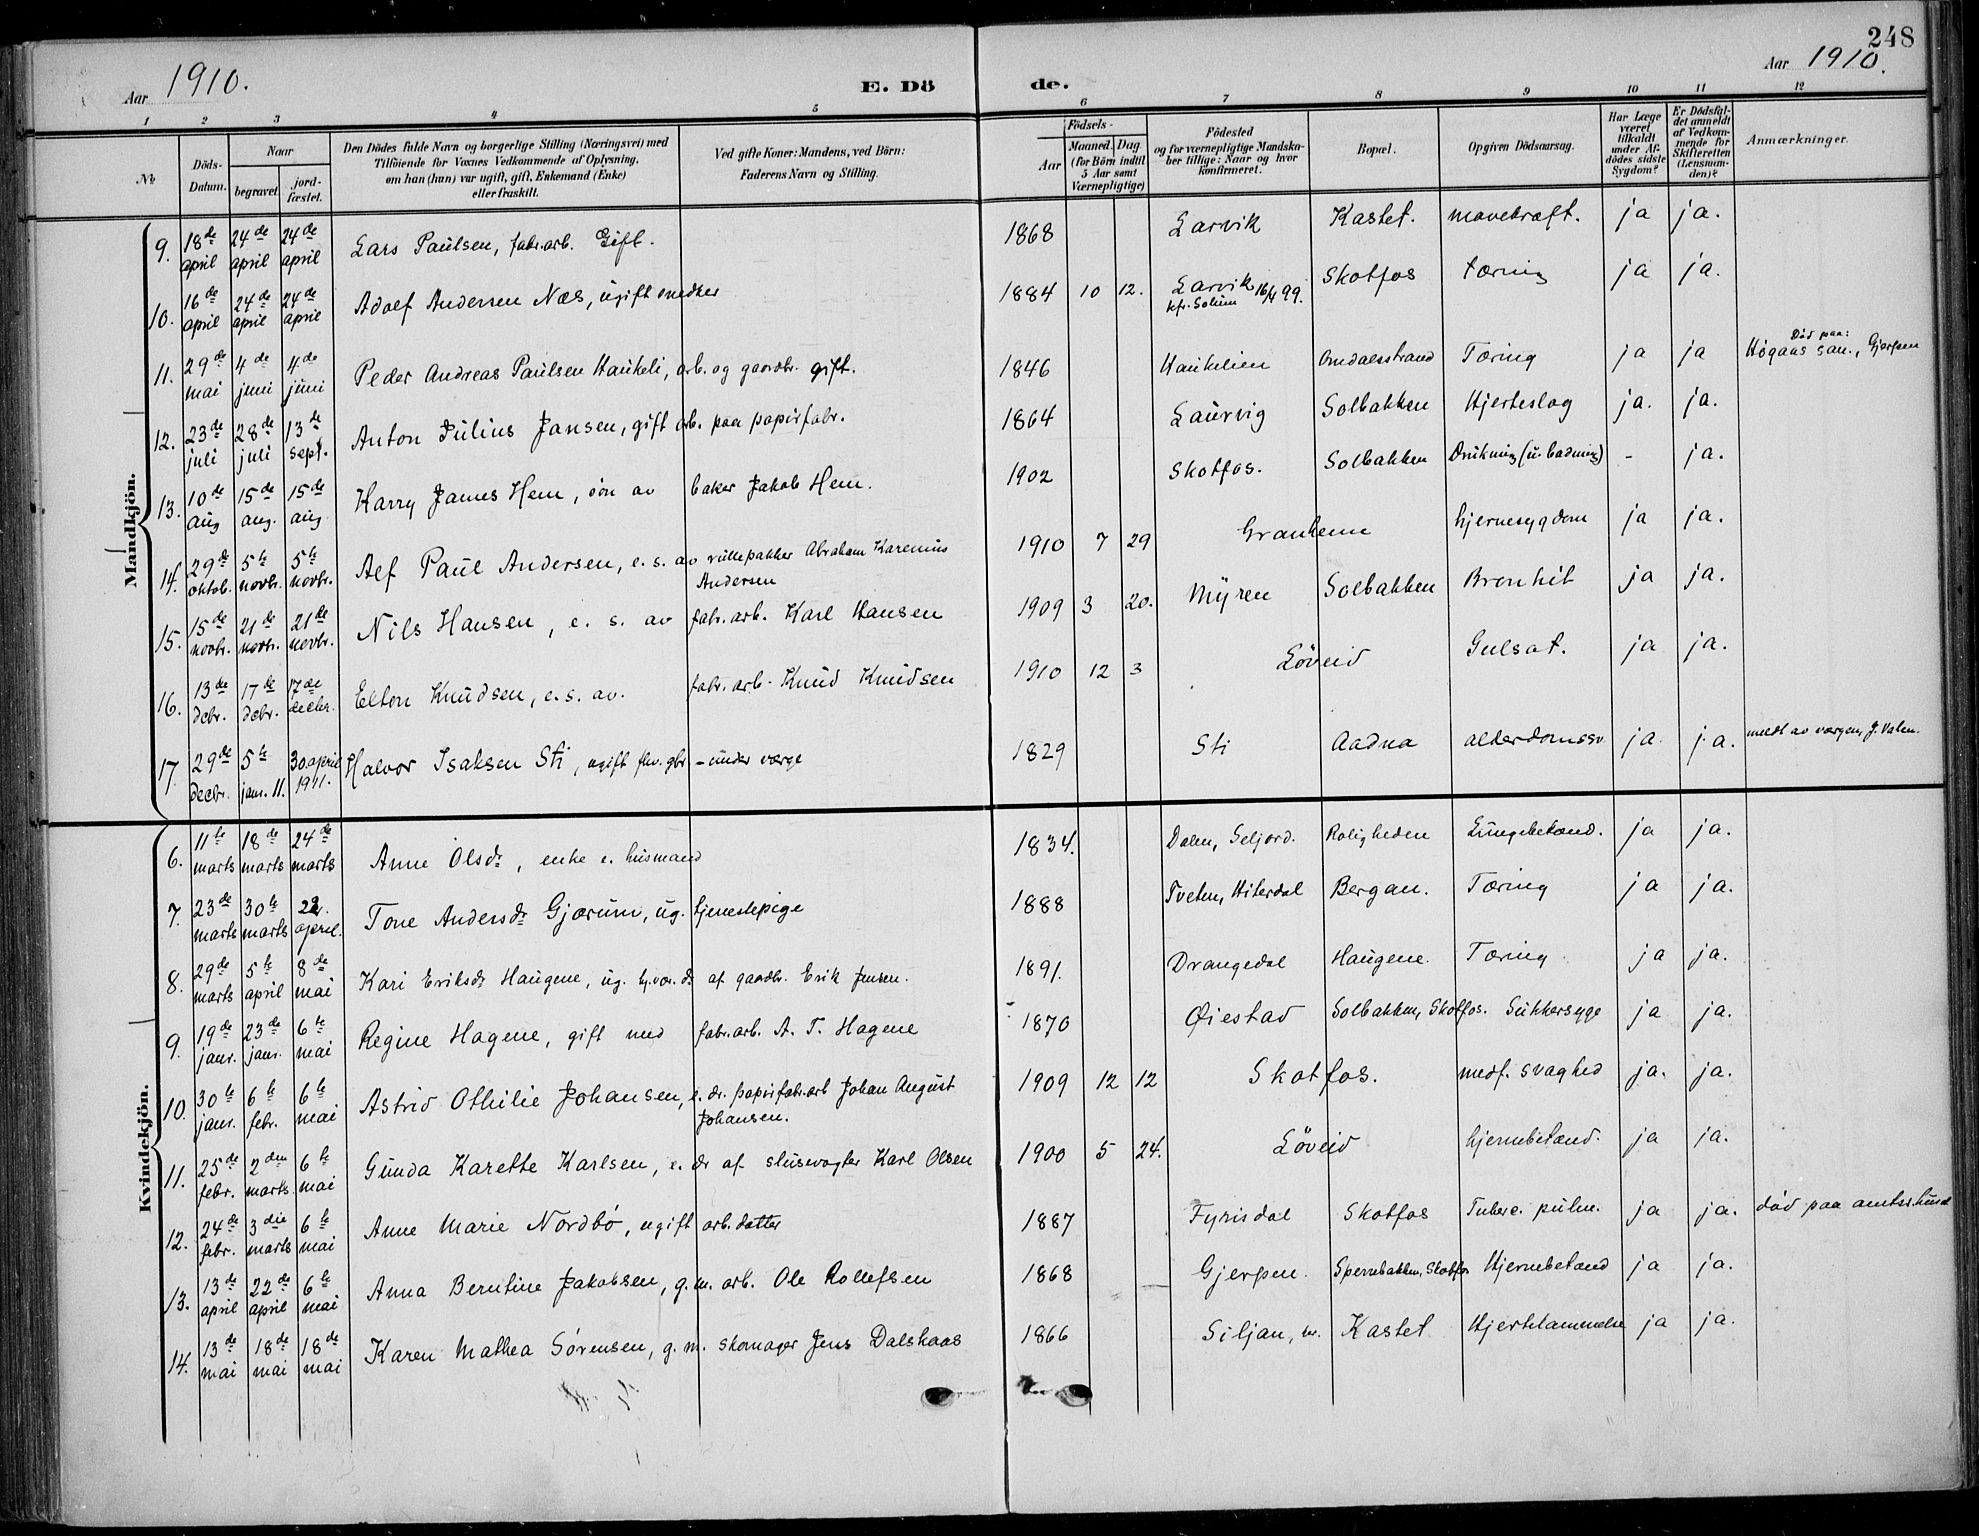 248
Aar 1910.
E. Dö de.
Aar 1910.
1 2 3 4 5 6 7 8 9 10 11 12
No
Döds-Datum.
Naar
begravet.
jord-fæstet.
Den Dödes fulde Navn og borgerlige Stilling (Næringsvei) med
Tilföiende for Voxnes Vedkommende af Oplysning,
om han (hun) var ugift, gift, Enkemand (Enke)
eller fraskilt.
Ved gifte Koner: Mandens, ved Börn:
Faderens Navn og Stilling.
Födsels-
Aar
Maaned. Dag
(for Börn indtil
5 Aar samt
Værnepligtige)
Födested
og for værnepligtige Mandska-
ber tillige: Naar og hvor
konfirmeret.
Bopæl.
Opgiven Dödsaarsag.
Har Læge
været
tilkaldt
under Af-
dödes sidste
Sygdom?
Er Dödsfal-
det anmeldt
af Vedkom-
mende for
Skifteretten
(Lensman-
den)?
Anmærkninger.
Mandkjön.
9. 18de april 24de april 24de april Lars Paulsen, fabr.arb. Gift. 1868 Larvik Kastet. mavekræft. ja ja.
10. 16de april 24de april 24de april Adolf Andersen Næs, ugift snedker 1884 10 12. Larvik kfr. Solum 16/4 99. Skotfos tæring ja ja.
11. 29de mai 4de juni 4de juni Peder Andreas Paulsen Haukeli, arb. og gaardbr. gift. 1846 Haukelien Omdalsstrand Tæring ja ja Död paa: Högaas san., Gjerpen
12. 23de juli 28de juli 13de sept. Anton Julius Jansen, gift arb. paa papirfabr. 1864 Laurvig Solbakken Hjerteslag ja. ja.
13. 10de aug 15de aug. 15de aug. Harry James Hem, sön av baker Jakob Hem. 1902 Skotfos. Solbakken Drukning (u. badning) - ja.
14. 29de oktob. 5te novbr. 5te novbr. Alf Paul Andersen, e. s. av rullepakker Abraham Karenius Andersen 1910 7 29 Granhem hjernesygdom ja ja.
15. 15de novbr. 21de novbr. 21de novbr. Nils Hansen, e. s. av fabr. arb. Karl Hansen 1909 3 20. Myren Solbakken Bronkit ja ja.
16. 13de debr. 17de debr. 17de decbr. Elton Knudsen, e. s. av. fabr. arb. Knud Knudsen 1910 12 3 Löveid Gulsot. ja ja.
17. 29de decbr. 5te janr. 11. 30 april 1911. Halvor Isaksen Sti, ugift fhv. gbr - under værge 1829 Sti Aadna alderdomssv. ja. ja. meldt av værgen, J. Valen.
Kvindekjön.
6. 11te marts 18de marts 24de marts Anne Olsdr, enke e. husmand 1834. Dalen, Seljord. Roligheden Lungebetænd. ja ja.
7. 23de marts 30te marts 22. april. Tone Andersdr Gjærum, ug. tjenestepige 1888 Tveten, Hiterdal Bergan. Tæring ja ja.
8. 29de marts 5te april 8de mai Kari Eriksdr Haugene, ug. hj.vær. dr af gaardbr. Erik Jensen. 1891. Drangedal Haugene. Tæring ja ja.
9. 19de janr. 23de janr. 6te mai Regine Hagene, gift med fabr. arb. A. T. Hagene 1870 Øiestad Solbakken, Skotfos. Sukkersyge ja ja.
10. 30te janr. 6te febr. 6te mai Astrid Othilie Johansen, e. dr. papirfabr.arb Johan August Johansen. 1909 12 12 Skotfos. medf. svaghed ja. ja.
11. 25de febr. 2den marts. 6te mai Gunda Karette Karlsen, e. dr af slusevogter Karl Olsen 1900 5 24. Löveid hjernebetænd. ja ja.
12. 24de febr. 3die marts 6te mai Anne Marie Nordbö, ugift arb. datter 1887 Fyrisdal Skotfos Tuberc. pulm. ja ja. död paa amtssh
13. 13de april 22de april 6te mai Anna Berntine Jakobsen, g. m. arb. Ole Rollefsen 1868 Gjerpen. Sperrebakken, Skotfos Hjernebetænd ja ja.
14. 13de mai 18de mai 18de mai Karen Mathea Sørensen, g. m. skomager Jens Dalskaas 1866 Siljan, Kastet Hjertelammelse ja ja.